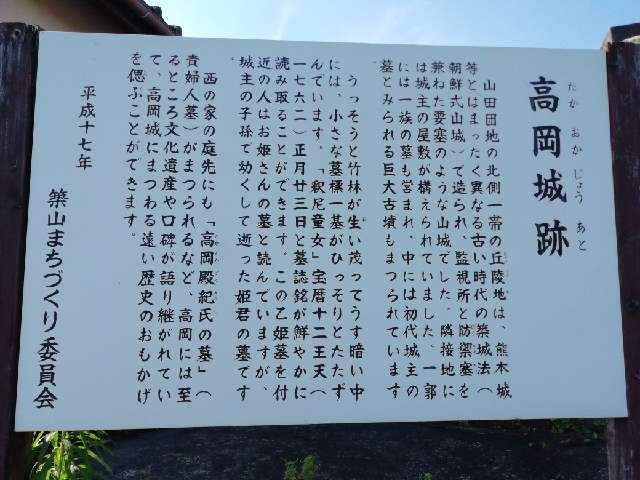 高岡城跡
たか おか じょう あと
山田団地の北側一帯の丘陵地は、熊本城
等とはまったく異なる古い時代の築城法(
朝鮮式山城)で造られ、監視所と防禦塞を
兼ねた要塞のような山城でした。隣接地に
は城主の屋敷が構えられていました。一郭
には一族の墓も営まれ、中には初代城主の
墓とみられる巨大古墳もまつられています
うっそうと竹林が生い茂ってうす暗い中
には、小さな墓標一基がひっそりとたたず
んでいます。「釈尼童女」宝暦十二壬天(
一七六二)正月廿三日と墓誌銘が鮮やかに
読み取ることができます。この乙姫墓を付
近の人はお姫さんの墓と読んでいますが、
城主の子孫で幼くして逝った姫君の墓です
西の家の庭先にも「高岡殿紀氏の墓」(
貴婦人墓)がまつられるなど、高岡には至
るところ文化遺産や口碑が語り継がれてい
て、高岡城にまつわる遠い歴史のおもかげ
を偲ぶことができます。
平成十七年
築山まちづくり委員会